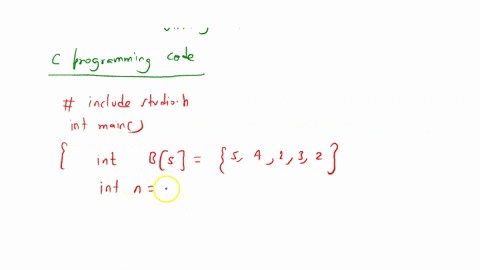 C programming code
# include studio.h
int main()
{ int B[5] = { 5, 4, 1, 3, 2 }
int n =